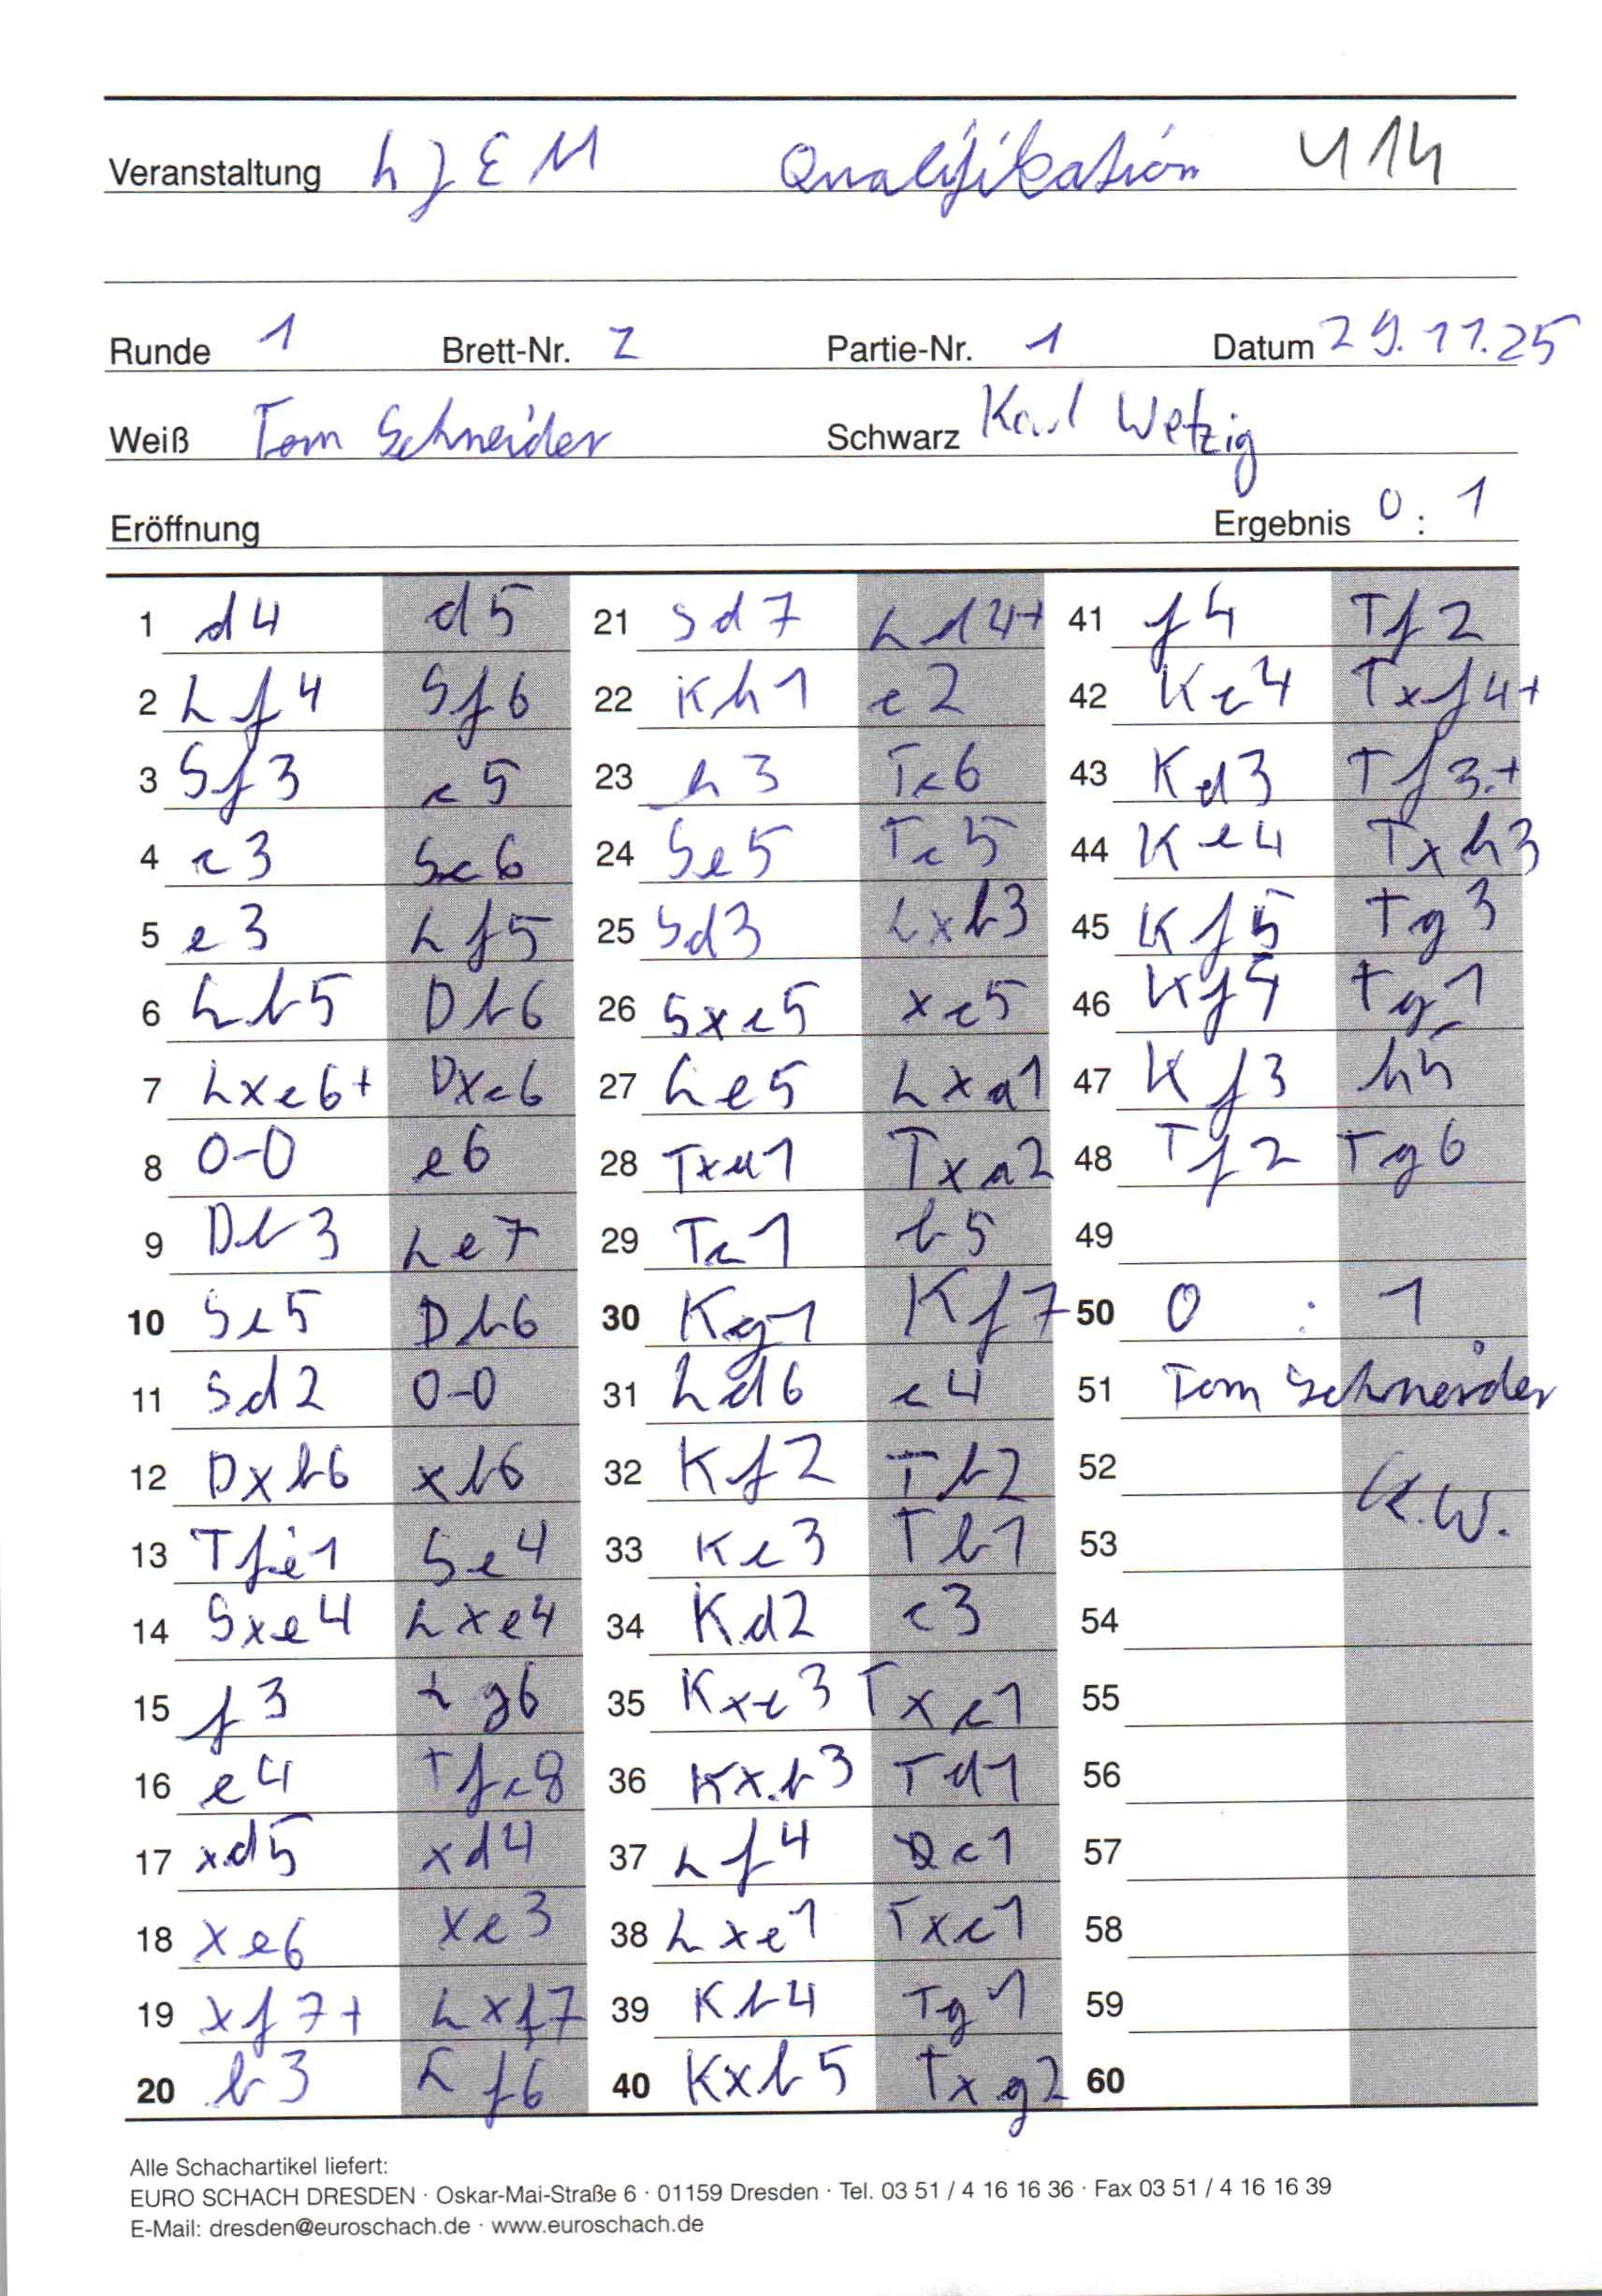 Veranstaltung LJEM Qualifikation U14
Runde 1 Brett-Nr. 2 Partie-Nr. 1 Datum 29.11.25
Weiß Tom Schneider Schwarz Karl Wetzig
Eröffnung Ergebnis 0 : 1
1 d4 d5
2 Lf4 Sf6
3 Sf3 c5
4 c3 Sc6
5 e3 Lf5
6 Lb5 Db6
7 Lxc6+ Dxc6
8 0-0 e6
9 Db3 Le7
10 Se5 Db6
11 Sd2 0-0
12 Dxb6 xb6
13 Tfe1 Se4
14 Sxe4 Lxe4
15 f3 Lg6
16 e4 Tfc8
17 xd5 xd4
18 xe6 xc3
19 xf7+ Lxf7
20 b3 Lf6
21 Sd7 Ld4+
22 Kh1 c2
23 h3 Tc6
24 Se5 Tc5
25 Sd3 Lxb3
26 Sxc5 xc5
27 Le5 Lxa1
28 Txa1 Txa2
29 Tc1 b5
30 Kg1 Kf7
31 Ld6 c4
32 Kf2 Tb2
33 Ke3 Tb1
34 Kd2 c3
35 Kxc3 Txc1
36 Kxb3 Td1
37 Lf4 Dc1
38 Lxc1 Txc1
39 Kb4 Tg1
40 Kxb5 Txg2
41 f4 Tf2
42 Kc4 Txf4+
43 Kd3 Tf3+
44 Ke4 Txh3
45 Kf5 Tg3
46 Kf4 Tg1
47 Kf3 h5
48 Tf2 Tg6
49
50 0 : 1
51 Tom Schneider
52 K.W.
53
54
55
56
57
58
59
60
Alle Schachartikel liefert:
EURO SCHACH DRESDEN · Oskar-Mai-Straße 6 · 01159 Dresden · Tel. 03 51 / 4 16 16 36 · Fax 03 51 / 4 16 16 39
E-Mail: dresden@euroschach.de · www.euroschach.de